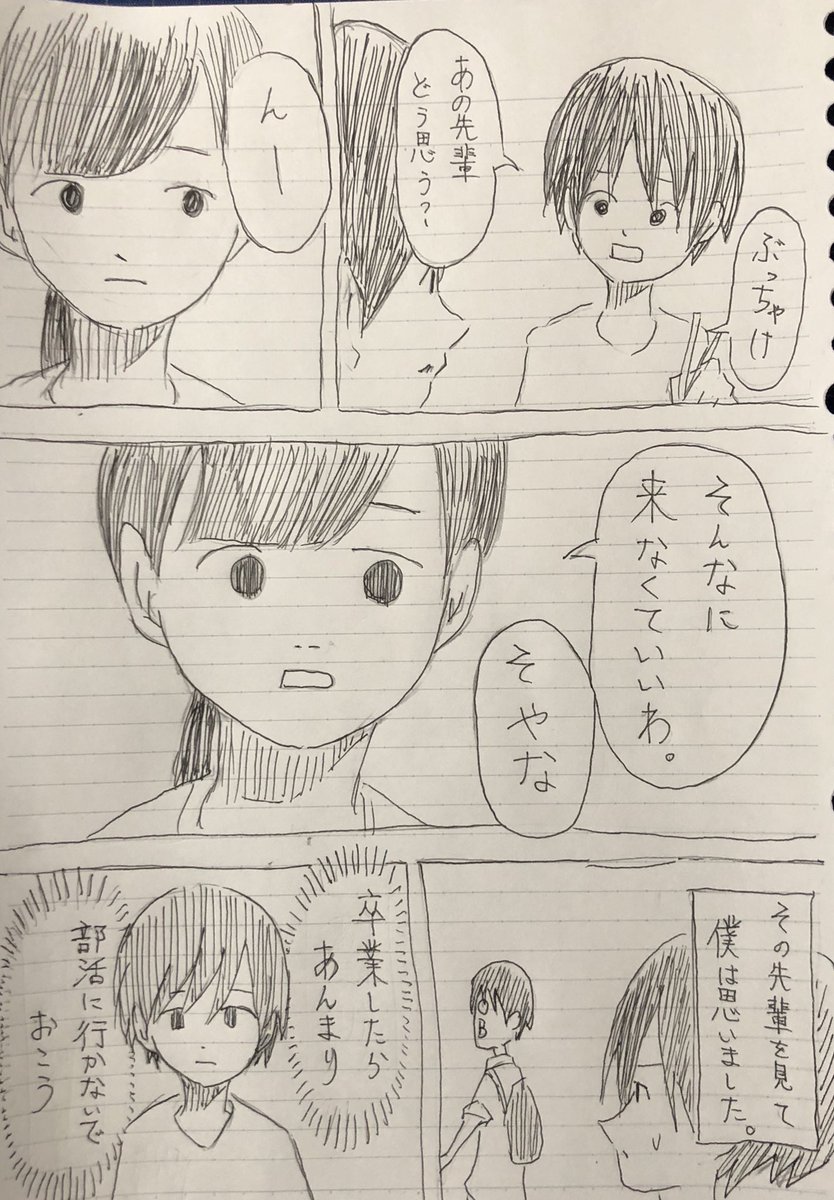 ぶっちゃけ
あの先輩
どう思う?
んー
そんなに
来なくていいわ。
そやな
その先輩を見て
僕は思いました。
OB
卒業したら
あんまり
部活に行かないで
おこう